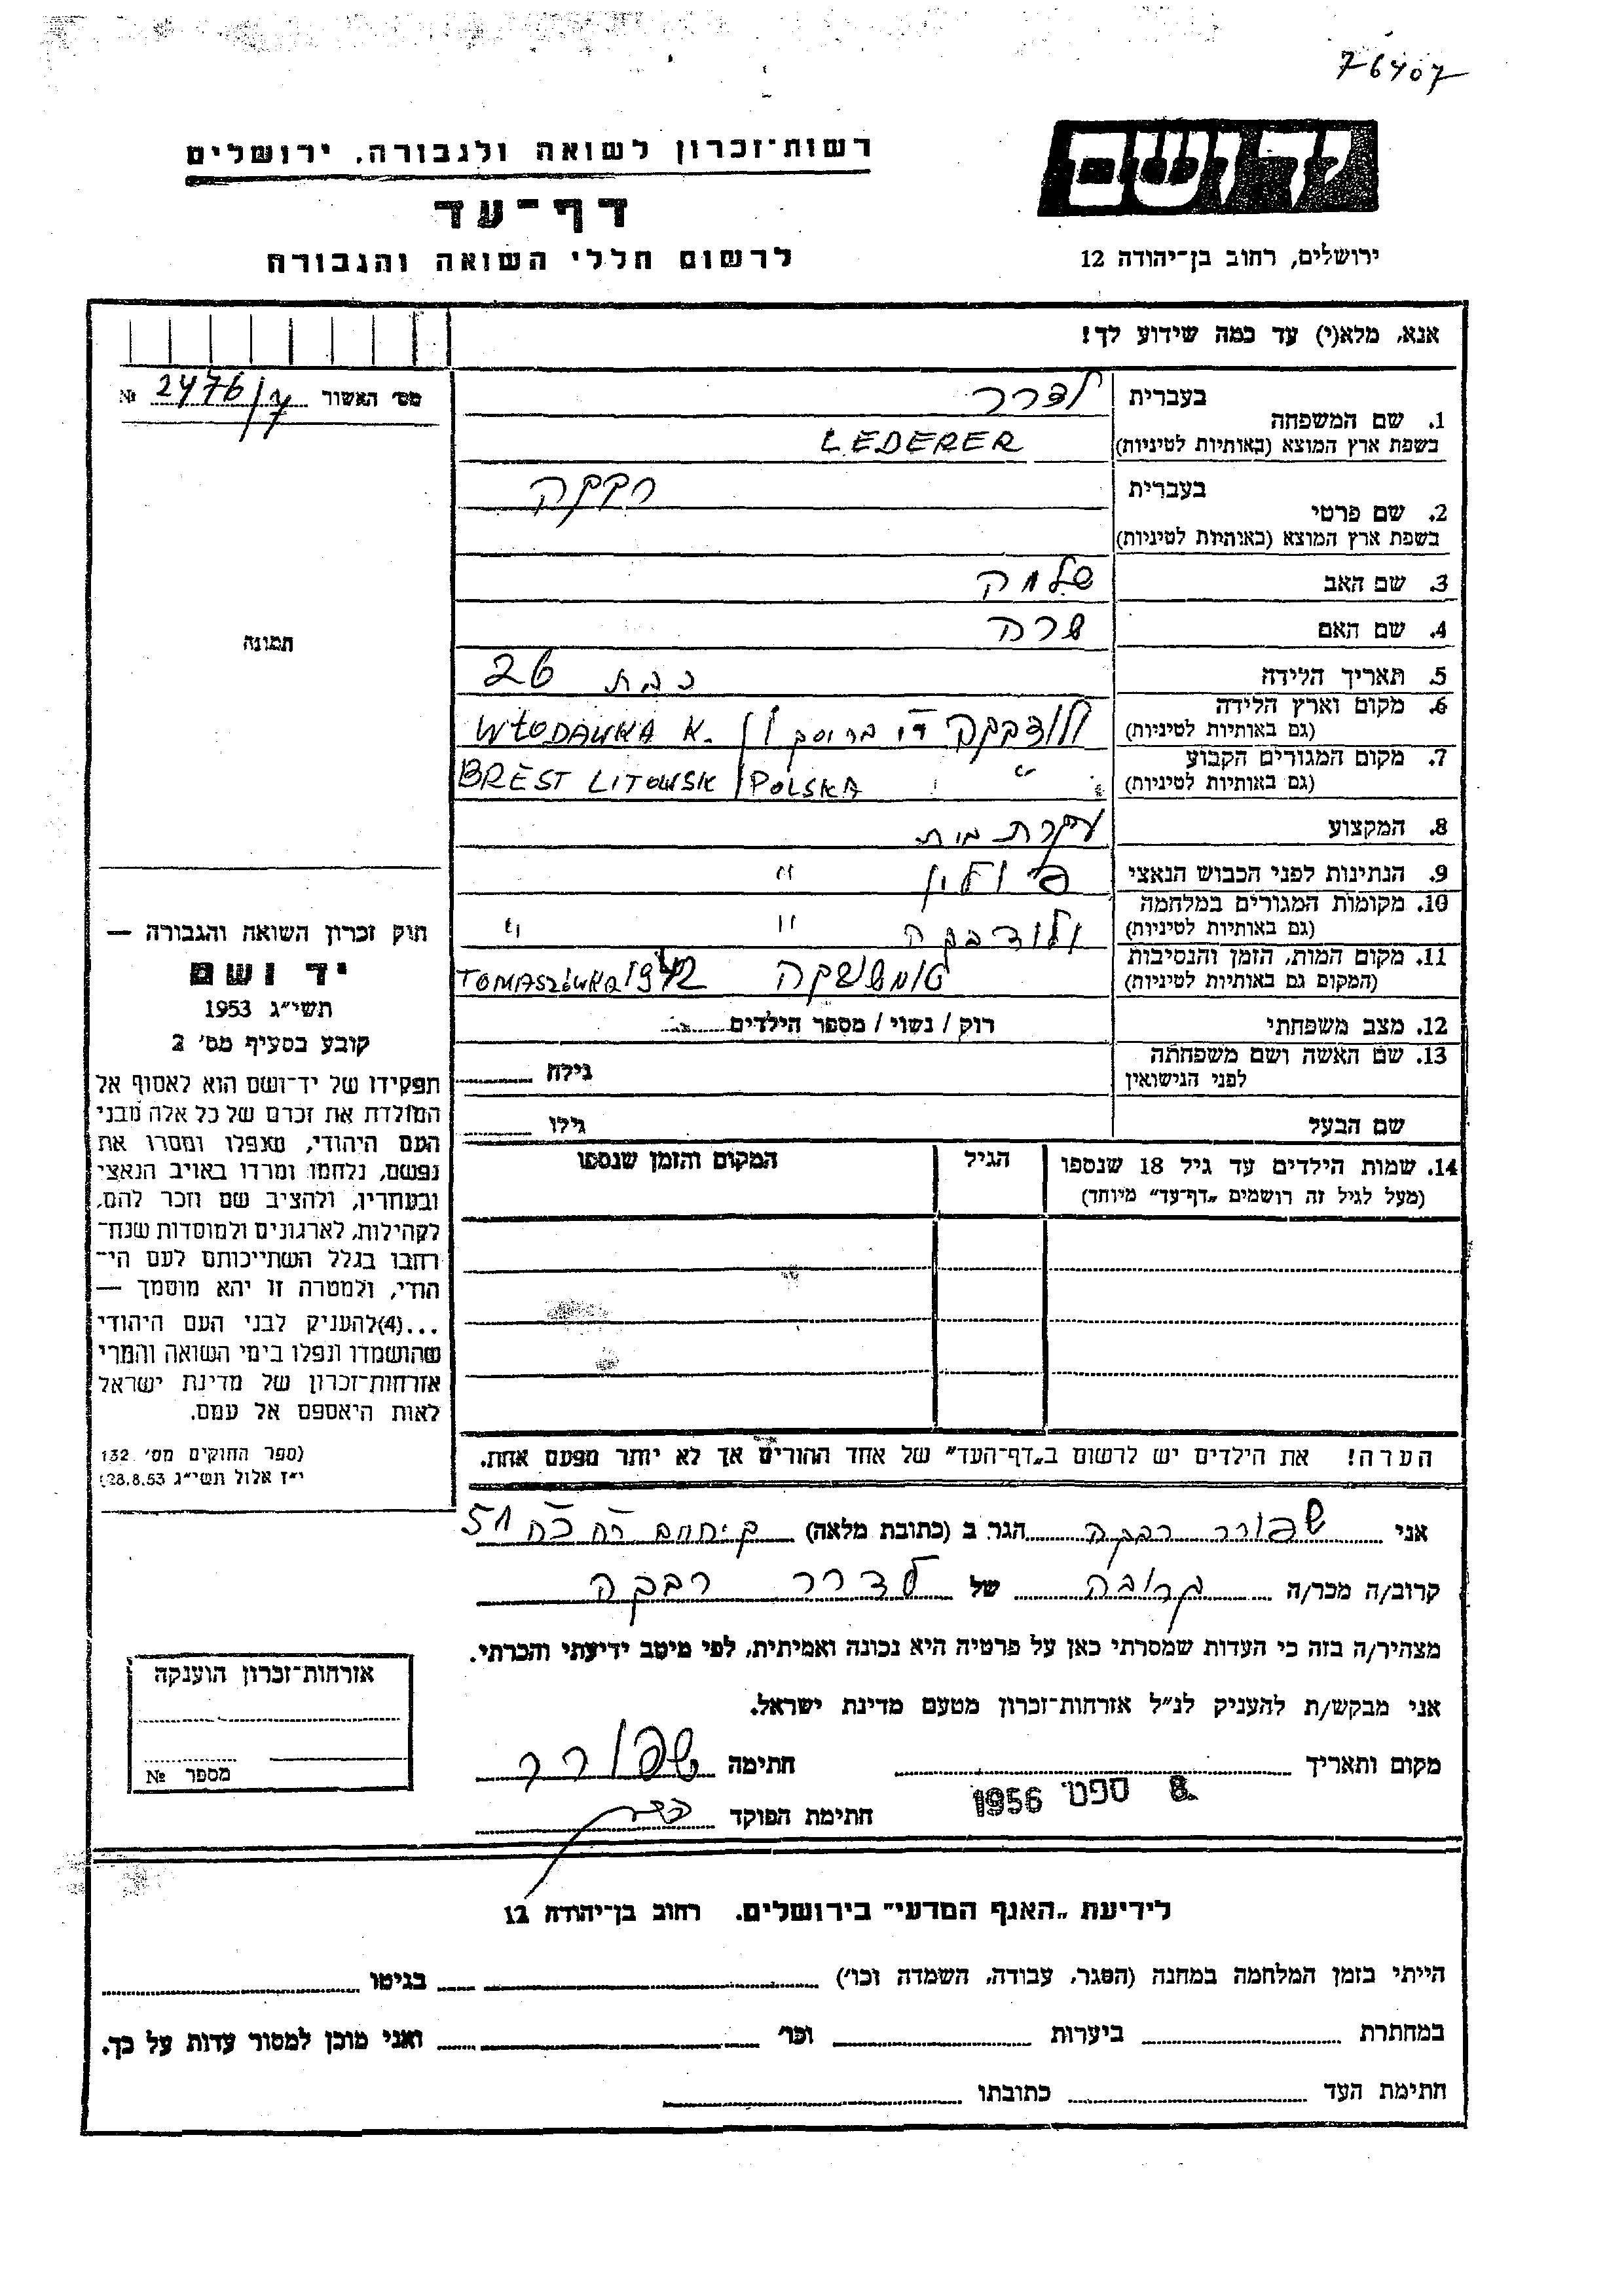 76407
יד ושם
רשות־זכרון לשואה ולגבורה, ירושלים
דף־עד
לרשום חללי השואה והגבורה
ירושלים, רחוב בן־יהודה 12
אנא, מלא(י) עד כמה שידוע לך!
מס׳ האשור № 2476/7
בעברית לדרר
1. שם המשפחה
בשפת ארץ המוצא (באותיות לטיניות) LEDERER
בעברית רבקה
2. שם פרטי
בשפת ארץ המוצא (באותיות לטיניות)
3. שם האב שלמה
4. שם האם שרה
תמונה
5. תאריך הלידה כבת 26
6. מקום וארץ הלידה
(גם באותיות לטיניות) ולודבקה WŁODAWKA K.
7. מקום המגורים הקבוע
(גם באותיות לטיניות) " BREST LITOWSK / POLSKA
8. המקצוע עקרת בית
9. הנתינות לפני הכבוש הנאצי פולין "
10. מקומות המגורים במלחמה
(גם באותיות לטיניות) ולודבקה " "
11. מקום המות, הזמן והנסיבות
(המקום גם באותיות לטיניות) טומשובקה TOMASZÓWKA 1942
12. מצב משפחתי רוק / נשוי / מספר הילדים
13. שם האשה ושם משפחתה
לפני הנישואין גילה
שם הבעל גילו
14. שמות הילדים עד גיל 18 שנספו הגיל המקום והזמן שנספו
(מעל לגיל זה רושמים „דף־עד״ מיוחד)
חוק זכרון השואה והגבורה —
יד ושם
תשי״ג 1953
קובע בסעיף מס׳ 2
תפקידו של יד־ושם הוא לאסוף אל
המולדת את זכרם של כל אלה מבני
העם היהודי, שנפלו ומסרו את
נפשם, נלחמו ומרדו באויב הנאצי
ובעוזריו, ולהציב שם וזכר להם,
לקהילות, לארגונים ולמוסדות שנח־
רחבו בגלל השתייכותם לעם הי־
הודי, ולמטרה זו יהא מוסמך —
...(4)להעניק לבני העם היהודי
שהושמדו ונפלו בימי השואה והמרי
אזרחות־זכרון של מדינת ישראל
לאות היאספם אל עמם.
(ספר החוקים מס׳ 132
י״ז אלול תשי״ג 28.8.53)
הערה! את הילדים יש לרשום ב„דף־העד״ של אחד ההורים אך לא יותר מפעם אחת.
אני שפורר רבקה הגר ב (כתובת מלאה) 51
קרוב/ה מכר/ה קרובה של לדרר רבקה
מצהיר/ה בזה כי העדות שמסרתי כאן על פרטיה היא נכונה ואמיתית, לפי מיטב ידיעתי והכרתי.
אני מבקש/ת להעניק לנ״ל אזרחות־זכרון מטעם מדינת ישראל.
מקום ותאריך חתימה שפורר
8 ספט׳ 1956
חתימת הפוקד
אזרחות־זכרון הוענקה
מספר №
לידיעת „האגף המדעי״ בירושלים. רחוב בן־יהודה 12
הייתי בזמן המלחמה במחנה (הסגר, עבודה, השמדה וכו׳) בגיטו
במחתרת ביערות וכו׳ ואני מוכן למסור עדות על כך.
חתימת העד כתובתו